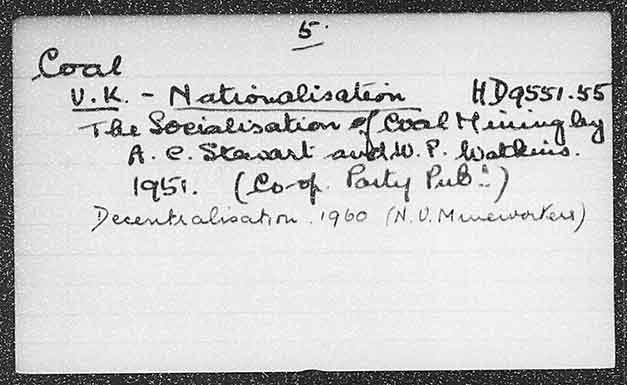 5.
Coal
U.K. - Nationalisation HD9551.55
The Socialisation of Coal Mining by
A. C. Stewart and W. P. Watkins.
1951. (Co-op. Party Pub:)
Decentralisation. 1960 (N.U. Mineworkers)